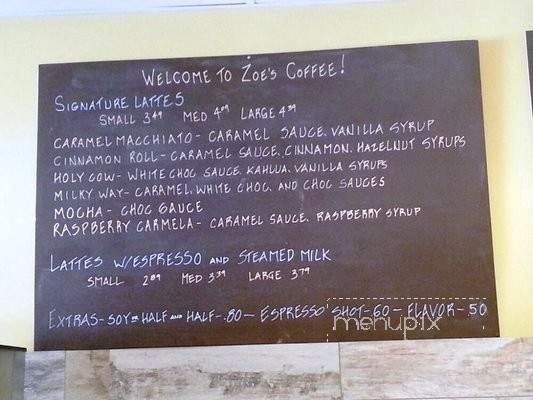 WELCOME TO ZOE'S COFFEE!
SIGNATURE LATTES
SMALL 3.49 MED 4.09 LARGE 4.39
CARAMEL MACCHIATO- CARAMEL SAUCE, VANILLA SYRUP
CINNAMON ROLL- CARAMEL SAUCE, CINNAMON, HAZELNUT SYRUPS
HOLY COW- WHITE CHOC SAUCE, KAHLUA, VANILLA SYRUPS
MILKY WAY- CARAMEL, WHITE CHOC, AND CHOC SAUCES
MOCHA- CHOC SAUCE
RASPBERRY CARMELA- CARAMEL SAUCE, RASPBERRY SYRUP
LATTES W/ESPRESSO AND STEAMED MILK
SMALL 2.89 MED 3.39 LARGE 3.79
EXTRAS- SOY OR HALF AND HALF-.80- ESPRESSO SHOT-.60- FLAVOR-.50
menupix